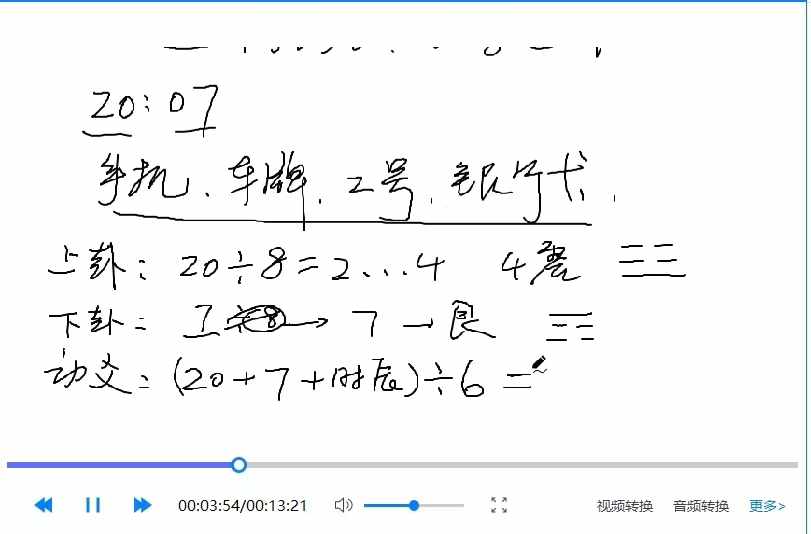 20:07
手机、车牌、工号、银行卡、
上卦: 20÷8=2...4 4震 ☳
下卦: 7÷8→7→艮 ☶
动爻:(20+7+时辰)÷6=
00:03:54/00:13:21 视频转换 音频转换 更多>